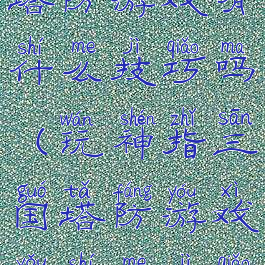 塔防游戏有
shí me jì qiǎo ma
什么技巧吗
wán shén zhǐ sān
（玩神指三
guó tǎ fáng yóu xì
国塔防游戏